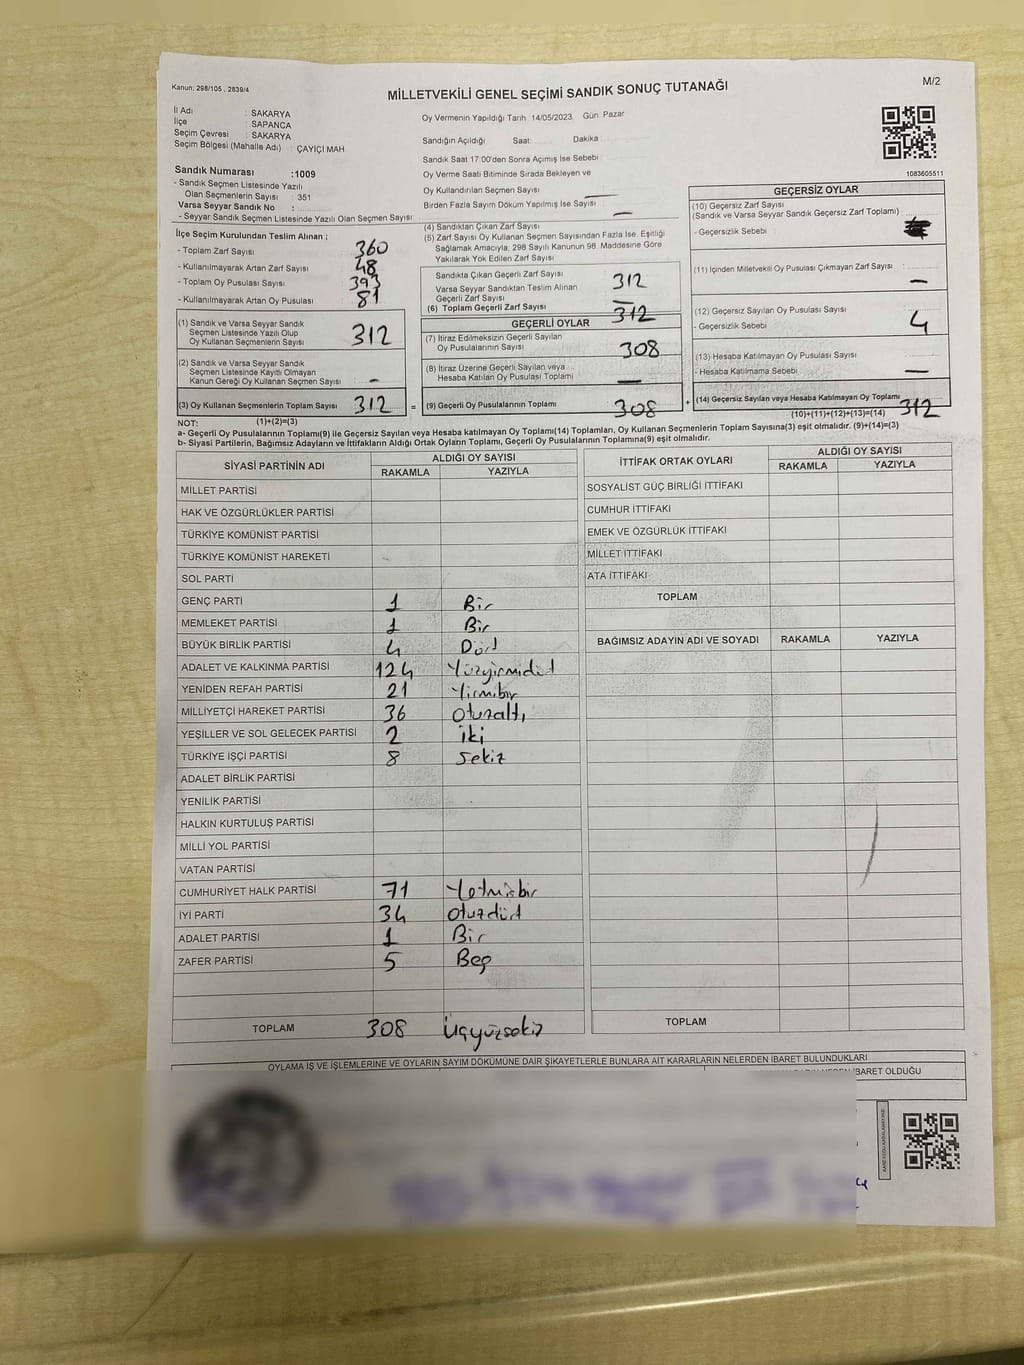 Kanun: 298/105 , 2839/4
MİLLETVEKİLİ GENEL SEÇİMİ SANDIK SONUÇ TUTANAĞI
M/2
İl Adı : SAKARYA
İlçe : SAPANCA
Seçim Çevresi : SAKARYA
Seçim Bölgesi (Mahalle Adı) : ÇAYİÇİ MAH
Sandık Numarası :1009
- Sandık Seçmen Listesinde Yazılı
Olan Seçmenlerin Sayısı 351
Varsa Seyyar Sandık No :
- Seyyar Sandık Seçmen Listesinde Yazılı Olan Seçmen Sayısı
Oy Vermenin Yapıldığı Tarih 14/05/2023 Gün Pazar
Sandığın Açıldığı Saat Dakika
Sandık Saat 17:00'den Sonra Açımış İse Sebebi
Oy Verme Saati Bitiminde Sırada Bekleyen ve
Oy Kullandırılan Seçmen Sayısı —
Birden Fazla Sayım Döküm Yapılmış İse Sayısı —
1083605511
İlçe Seçim Kurulundan Teslim Alınan ;
- Toplam Zarf Sayısı 360
- Kullanılmayarak Artan Zarf Sayısı 48
- Toplam Oy Pusulası Sayısı 393
- Kullanılmayarak Artan Oy Pusulası 81
(1) Sandık ve Varsa Seyyar Sandık
Seçmen Listesinde Yazılı Olup
Oy Kullanan Seçmenlerin Sayısı 312
(2) Sandık ve Varsa Seyyar Sandık
Seçmen Listesinde Kayıtlı Olmayan
Kanun Gereği Oy Kullanan Seçmen Sayısı —
(3) Oy Kullanan Seçmenlerin Toplam Sayısı 312 =
(1)+(2)=(3)
(4) Sandıktan Çıkan Zarf Sayısı
(5) Zarf Sayısı Oy Kullanan Seçmen Sayısından Fazla İse, Eşitliği
Sağlamak Amacıyla; 298 Sayılı Kanunun 98. Maddesine Göre
Yakılarak Yok Edilen Zarf Sayısı
Sandıkta Çıkan Geçerli Zarf Sayısı 312
Varsa Seyyar Sandıktan Teslim Alınan
Geçerli Zarf Sayısı —
(6) Toplam Geçerli Zarf Sayısı 312
GEÇERLİ OYLAR
(7) İtiraz Edilmeksizin Geçerli Sayılan
Oy Pusulalarının Sayısı 308
(8) İtiraz Üzerine Geçerli Sayılan veya
Hesaba Katılan Oy Pusulası Toplamı —
(9) Geçerli Oy Pusulalarının Toplamı 308 +
GEÇERSİZ OYLAR
(10) Geçersiz Zarf Sayısı
(Sandık ve Varsa Seyyar Sandık Geçersiz Zarf Toplamı)
- Geçersizlik Sebebi
(11) İçinden Milletvekili Oy Pusulası Çıkmayan Zarf Sayısı —
(12) Geçersiz Sayılan Oy Pusulası Sayısı 4
- Geçersizlik Sebebi
(13) Hesaba Katılmayan Oy Pusulası Sayısı —
- Hesaba Katılmama Sebebi
(14) Geçersiz Sayılan veya Hesaba Katılmayan Oy Toplamı 312
(10)+(11)+(12)+(13)=(14)
NOT:
a- Geçerli Oy Pusulalarının Toplamı(9) ile Geçersiz Sayılan veya Hesaba katılmayan Oy Toplamı(14) Toplamları, Oy Kullanan Seçmenlerin Toplam Sayısına(3) eşit olmalıdır. (9)+(14)=(3)
b- Siyasi Partilerin, Bağımsız Adayların ve İttifakların Aldığı Ortak Oyların Toplamı, Geçerli Oy Pusulalarının Toplamına(9) eşit olmalıdır.
SİYASİ PARTİNİN ADI
ALDIĞI OY SAYISI
RAKAMLA YAZIYLA
MİLLET PARTİSİ
HAK VE ÖZGÜRLÜKLER PARTİSİ
TÜRKİYE KOMÜNİST PARTİSİ
TÜRKİYE KOMÜNİST HAREKETİ
SOL PARTİ
GENÇ PARTİ 1 Bir
MEMLEKET PARTİSİ 1 Bir
BÜYÜK BİRLİK PARTİSİ 4 Dört
ADALET VE KALKINMA PARTİSİ 124 Yüzyirmidört
YENİDEN REFAH PARTİSİ 21 Yirmibir
MİLLİYETÇİ HAREKET PARTİSİ 36 Otuzaltı
YEŞİLLER VE SOL GELECEK PARTİSİ 2 iki
TÜRKİYE İŞÇİ PARTİSİ 8 Sekiz
ADALET BİRLİK PARTİSİ
YENİLİK PARTİSİ
HALKIN KURTULUŞ PARTİSİ
MİLLİ YOL PARTİSİ
VATAN PARTİSİ
CUMHURİYET HALK PARTİSİ 71 Yetmişbir
İYİ PARTİ 34 otuzdört
ADALET PARTİSİ 1 Bir
ZAFER PARTİSİ 5 Beş
TOPLAM 308 Üçyüzsekiz
İTTİFAK ORTAK OYLARI
ALDIĞI OY SAYISI
RAKAMLA YAZIYLA
SOSYALİST GÜÇ BİRLİĞİ İTTİFAKI
CUMHUR İTTİFAKI
EMEK VE ÖZGÜRLÜK İTTİFAKI
MİLLET İTTİFAKI
ATA İTTİFAKI
TOPLAM
BAĞIMSIZ ADAYIN ADI VE SOYADI RAKAMLA YAZIYLA
TOPLAM
OYLAMA İŞ VE İŞLEMLERİNE VE OYLARIN SAYIM DÖKÜMÜNE DAİR ŞİKAYETLERLE BUNLARA AİT KARARLARIN NELERDEN İBARET BULUNDUKLARI
İBARET OLDUĞU